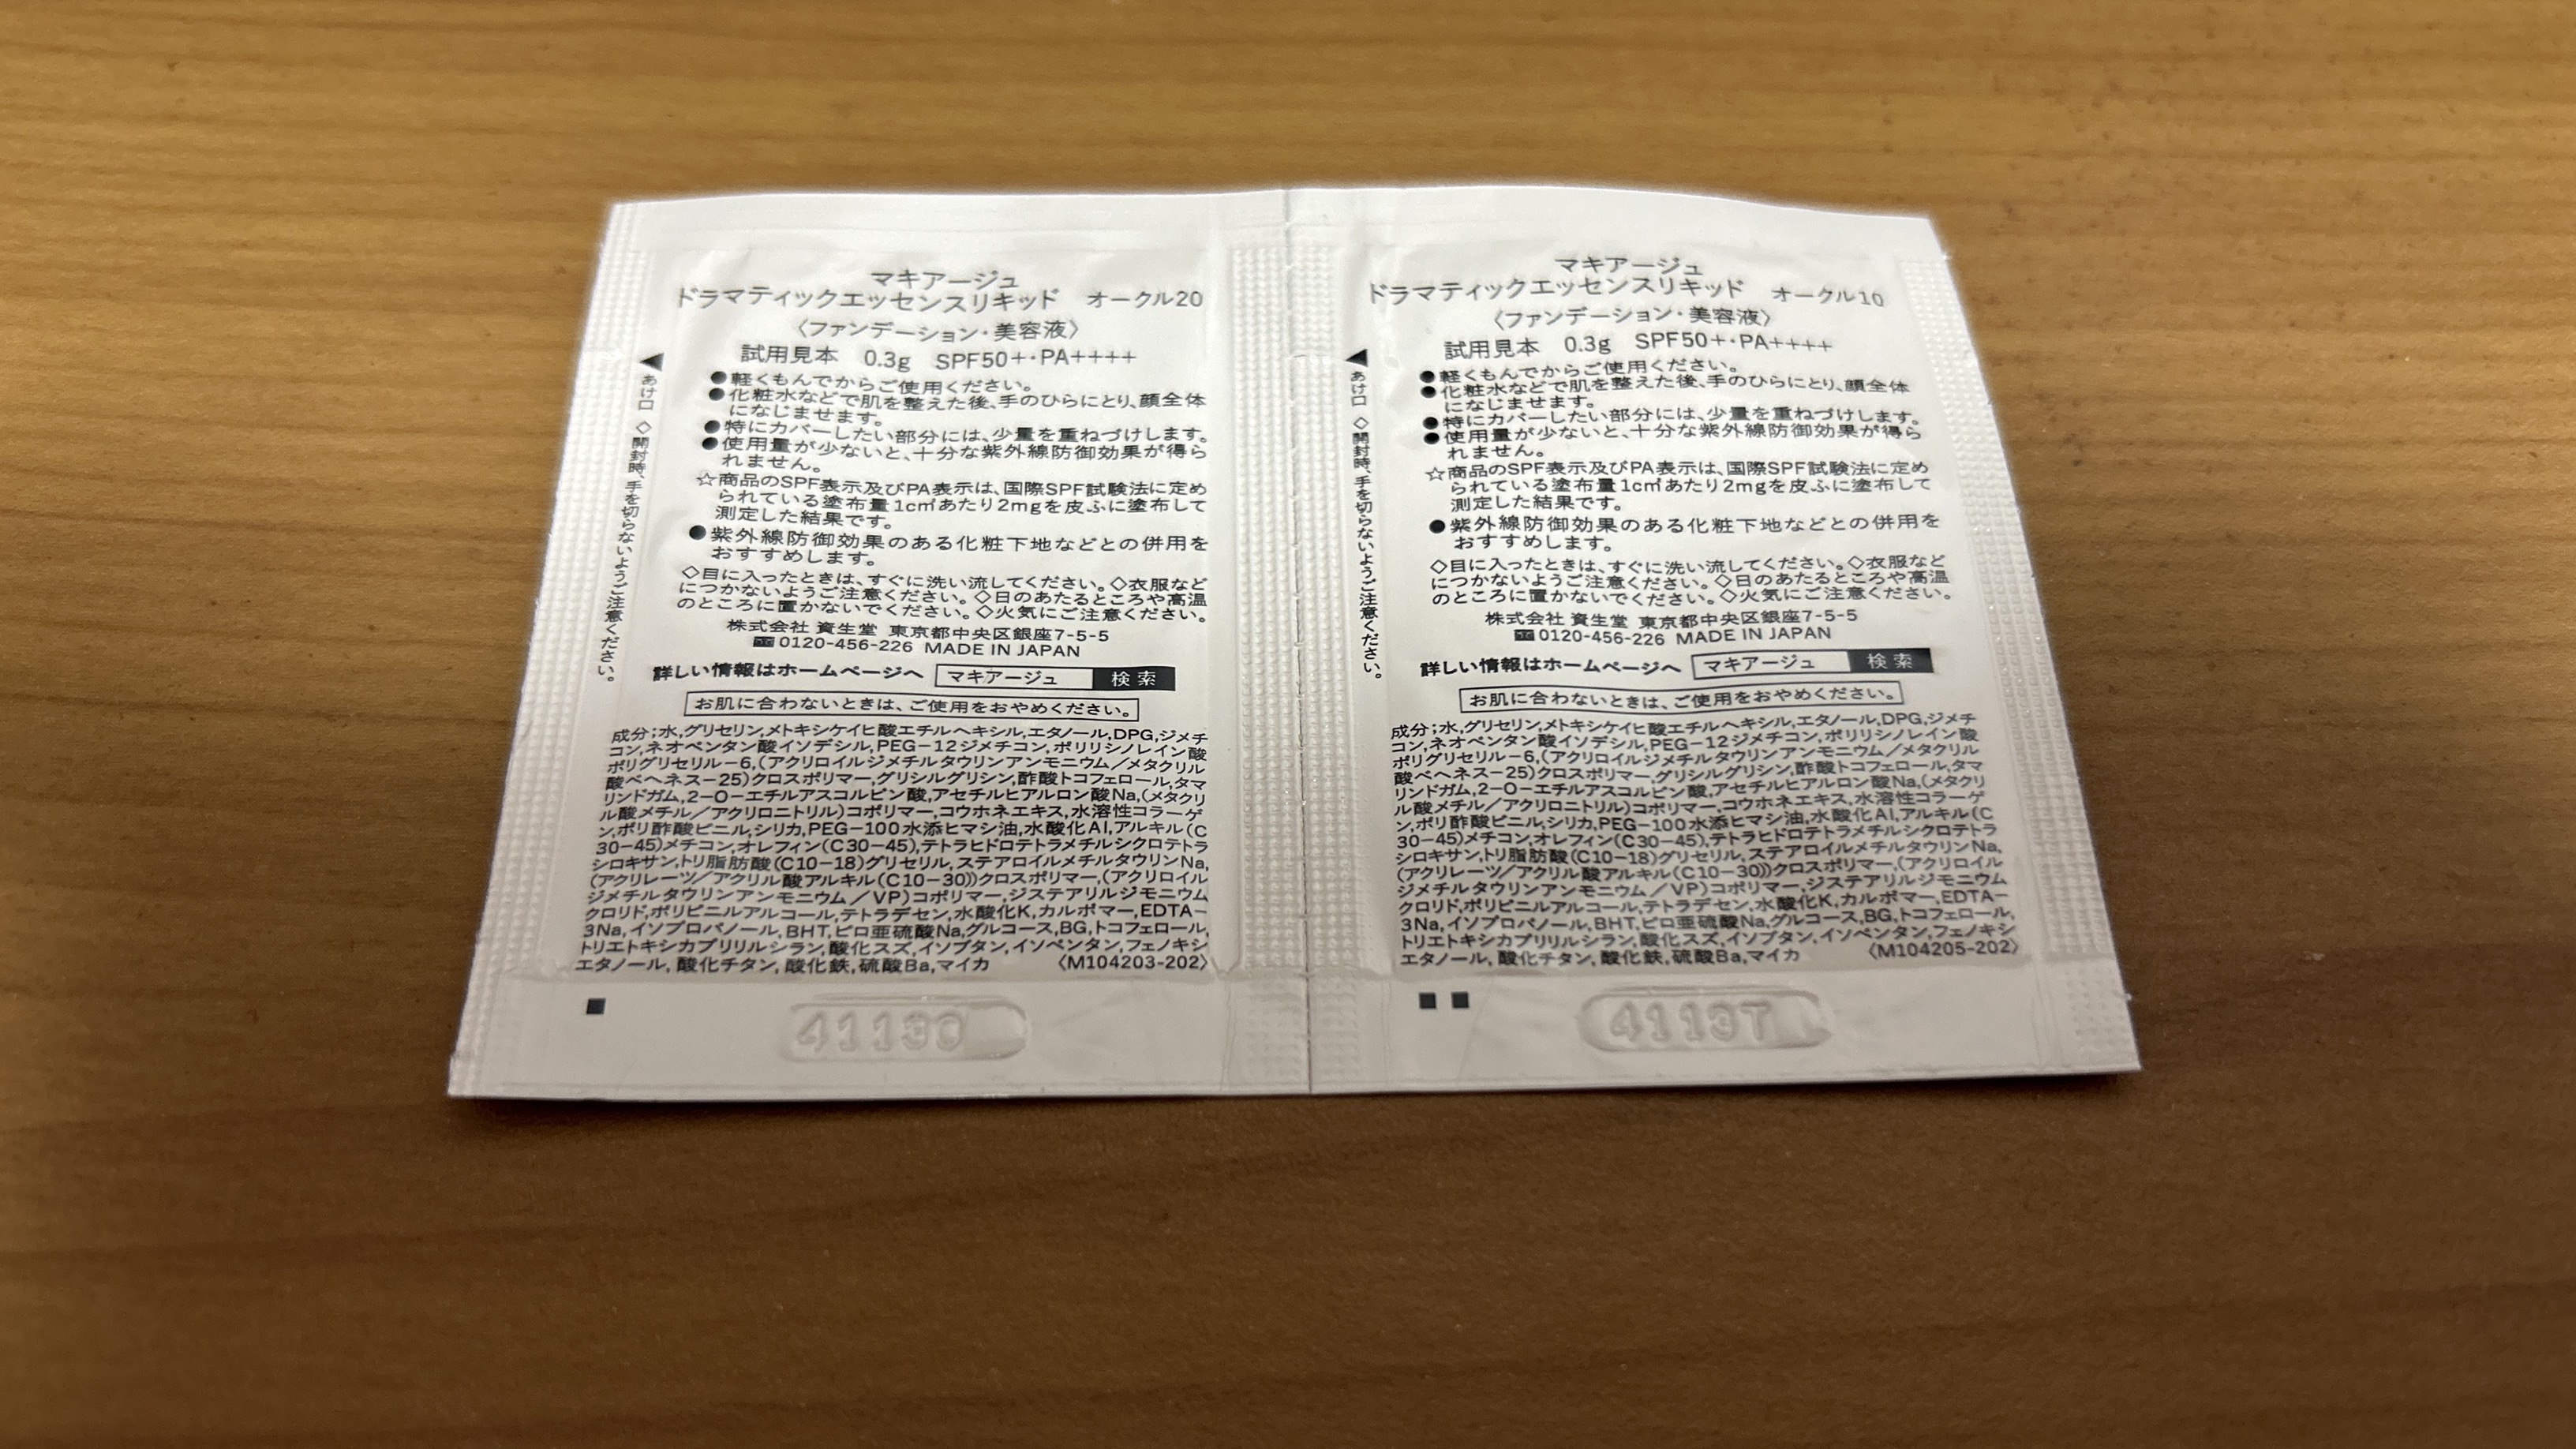 マキアージュ
ドラマティックエッセンスリキッド オークル20
〈ファンデーション・美容液〉
試用見本 0.3g SPF50+・PA++++
●軽くもんでからご使用ください。
●化粧水などで肌を整えた後、手のひらにとり、顔全体
になじませます。
●特にカバーしたい部分には、少量を重ねづけします。
●使用量が少ないと、十分な紫外線防御効果が得ら
れません。
☆商品のSPF表示及びPA表示は、国際SPF試験法に定め
られている塗布量1c㎡あたり2mgを皮ふに塗布して
測定した結果です。
●紫外線防御効果のある化粧下地などとの併用を
おすすめします。
◇目に入ったときは、すぐに洗い流してください。◇衣服など
につかないようご注意ください。◇日のあたるところや高温
のところに置かないでください。◇火気にご注意ください。
株式会社 資生堂 東京都中央区銀座7-5-5
0120-456-226 MADE IN JAPAN
詳しい情報はホームページへ マキアージュ 検索
お肌に合わないときは、ご使用をおやめください。
成分;水,グリセリン,メトキシケイヒ酸エチルヘキシル,エタノール,DPG,ジメチ
コン,ネオペンタン酸イソデシル,PEG-12ジメチコン,ポリリシノレイン酸
ポリグリセリル-6,(アクリロイルジメチルタウリンアンモニウム/メタクリル
酸ベヘネス-25)クロスポリマー,グリシルグリシン,酢酸トコフェロール,タマ
リンドガム,2-O-エチルアスコルビン酸,アセチルヒアルロン酸Na,(メタクリ
ル酸メチル/アクリロニトリル)コポリマー,コウホネエキス,水溶性コラーゲ
ン,ポリ酢酸ビニル,シリカ,PEG-100水添ヒマシ油,水酸化Al,アルキル(C
30-45)メチコン,オレフィン(C30-45),テトラヒドロテトラメチルシクロテトラ
シロキサン,トリ脂肪酸(C10-18)グリセリル,ステアロイルメチルタウリンNa,
(アクリレーツ/アクリル酸アルキル(C10-30))クロスポリマー,(アクリロイル
ジメチルタウリンアンモニウム/VP)コポリマー,ジステアリルジモニウム
クロリド,ポリビニルアルコール,テトラデセン,水酸化K,カルボマー,EDTA-
3Na,イソプロパノール,BHT,ピロ亜硫酸Na,グルコース,BG,トコフェロール,
トリエトキシカプリリルシラン,酸化スズ,イソブタン,イソペンタン,フェノキシ
エタノール,酸化チタン,酸化鉄,硫酸Ba,マイカ 〈M104203-202〉
◀あけ口 ◇開封時、手を切らないようご注意ください。
マキアージュ
ドラマティックエッセンスリキッド オークル10
〈ファンデーション・美容液〉
試用見本 0.3g SPF50+・PA++++
●軽くもんでからご使用ください。
●化粧水などで肌を整えた後、手のひらにとり、顔全体
になじませます。
●特にカバーしたい部分には、少量を重ねづけします。
●使用量が少ないと、十分な紫外線防御効果が得ら
れません。
☆商品のSPF表示及びPA表示は、国際SPF試験法に定め
られている塗布量1c㎡あたり2mgを皮ふに塗布して
測定した結果です。
●紫外線防御効果のある化粧下地などとの併用を
おすすめします。
◇目に入ったときは、すぐに洗い流してください。◇衣服など
につかないようご注意ください。◇日のあたるところや高温
のところに置かないでください。◇火気にご注意ください。
株式会社 資生堂 東京都中央区銀座7-5-5
0120-456-226 MADE IN JAPAN
詳しい情報はホームページへ マキアージュ 検索
お肌に合わないときは、ご使用をおやめください。
成分;水,グリセリン,メトキシケイヒ酸エチルヘキシル,エタノール,DPG,ジメチ
コン,ネオペンタン酸イソデシル,PEG-12ジメチコン,ポリリシノレイン酸
ポリグリセリル-6,(アクリロイルジメチルタウリンアンモニウム/メタクリル
酸ベヘネス-25)クロスポリマー,グリシルグリシン,酢酸トコフェロール,タマ
リンドガム,2-O-エチルアスコルビン酸,アセチルヒアルロン酸Na,(メタクリ
ル酸メチル/アクリロニトリル)コポリマー,コウホネエキス,水溶性コラーゲ
ン,ポリ酢酸ビニル,シリカ,PEG-100水添ヒマシ油,水酸化Al,アルキル(C
30-45)メチコン,オレフィン(C30-45),テトラヒドロテトラメチルシクロテトラ
シロキサン,トリ脂肪酸(C10-18)グリセリル,ステアロイルメチルタウリンNa,
(アクリレーツ/アクリル酸アルキル(C10-30))クロスポリマー,(アクリロイル
ジメチルタウリンアンモニウム/VP)コポリマー,ジステアリルジモニウム
クロリド,ポリビニルアルコール,テトラデセン,水酸化K,カルボマー,EDTA-
3Na,イソプロパノール,BHT,ピロ亜硫酸Na,グルコース,BG,トコフェロール,
トリエトキシカプリリルシラン,酸化スズ,イソブタン,イソペンタン,フェノキシ
エタノール,酸化チタン,酸化鉄,硫酸Ba,マイカ 〈M104205-202〉
◀あけ口 ◇開封時、手を切らないようご注意ください。
41137